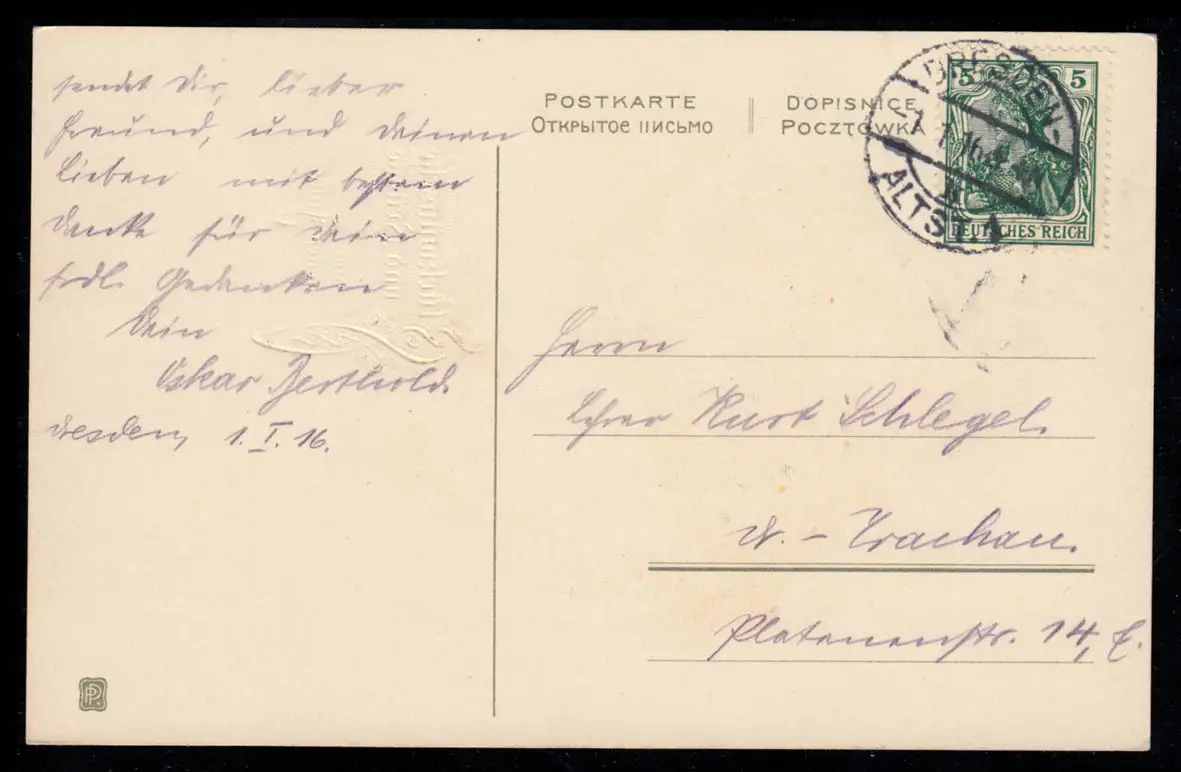 sendet Dir, lieber
Freund, und Deinen
Lieben mit bestem
Danke für Dein
frdl. Gedenken
Dein
Oskar Berthold.
Dresden, 1. I. 16.
POSTKARTE
ОТКРЫТОЕ ПИСЬМО
DOPISNICE
POCZTÓWKA
DRESDEN-
ALTST. 1
5 5
DEUTSCHES REICH
Herrn
Lehrer Kurt Schlegel.
D. - Trachau.
Platanenstr. 14, E.